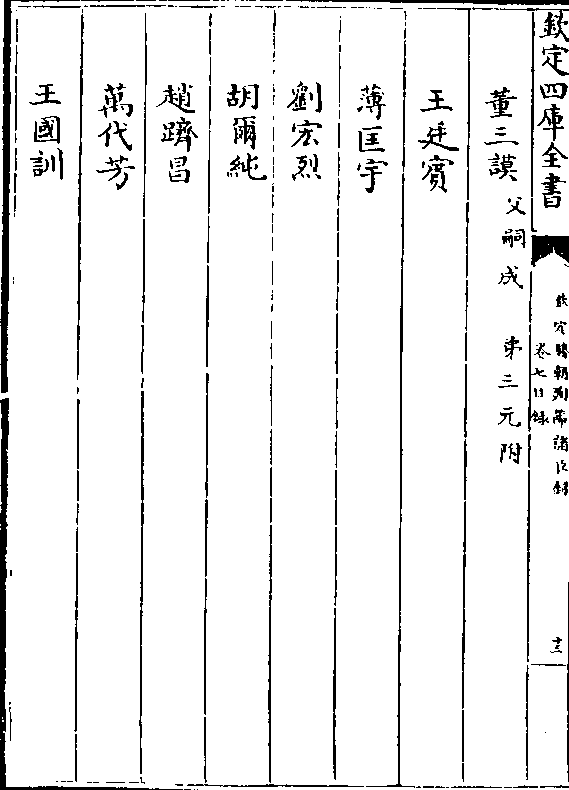 欽定四庫全書
欽定勝朝殉節諸臣録
卷七目録
十三
董三謨 父嗣成 弟三元附
王廷賓
薄匡宇
劉宏烈
胡爾純
趙躋昌
萬代芳
王國訓